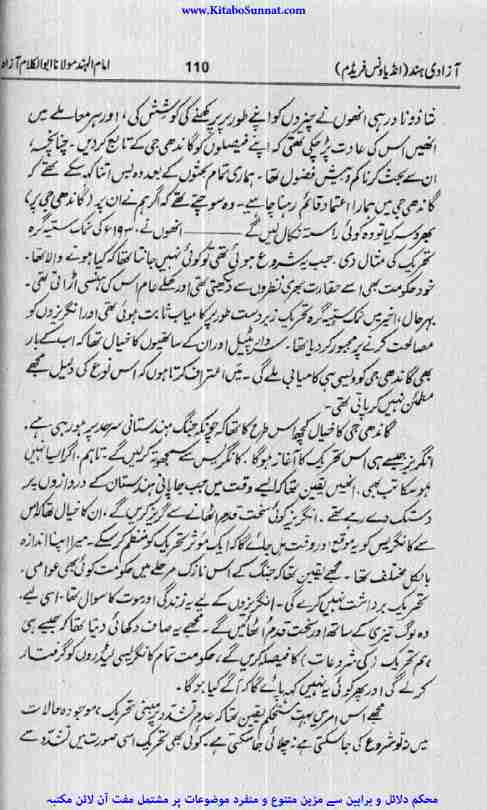 www.KitaboSunnat.com
آزادی ہند (انڈیا ونس فریڈم)
110
امام الہند مولانا ابوالکلام آزاد
شاذ و نادر ہی انھوں نے چیزوں کو اپنے طور پر پرکھنے کی کوشش کی، اور ہر معاملے میں
انھیں اس کی عادت پڑ چکی تھی کہ اپنے فیصلوں کو گاندھی جی کے تابع کر دیں۔ چنانچہ،
ان سے بحث کرنا کم و بیش فضول تھا۔ ہماری تمام بحثوں کے بعد وہ بس اتنا کہہ سکے تھے کہ
گاندھی جی میں ہمارا اعتماد قائم رہنا چاہیے۔ وہ سوچتے تھے کہ اگر ہم نے ان پر (گاندھی جی پر)
بھروسہ کیا تو وہ کوئی راستہ نکال لیں گے ـــــــ انھوں نے ۱۹۳۰ء کی نمک ستیہ گرہ
تحریک کی مثال دی۔ جب یہ شروع ہوئی تھی تو کوئی نہیں جانتا تھا کہ کیا ہونے والا تھا۔
خود حکومت بھی اسے حقارت بھری نظروں سے دیکھتی تھی اور کھلے عام اس کی ہنسی اڑاتی تھی۔
بہر حال، اخیر میں نمک ستیہ گرہ تحریک زبردست طور پر کامیاب ثابت ہوئی تھی اور انگریزوں کو
مصالحت کرنے پر مجبور کر دیا تھا۔ سردار پٹیل اور ان کے ساتھیوں کا خیال تھا کہ اب کے بار
بھی گاندھی جی کو ویسی ہی کامیابی ملے گی۔ میں اعتراف کرتا ہوں کہ اس نوع کی دلیل مجھے
مطمئن نہیں کر پاتی تھی۔
گاندھی جی کا خیال کچھ اس طرح کا تھا کہ چونکہ جنگ ہندستانی سرحد پر ہو رہی ہے،
انگریز جیسے ہی اس تحریک کا آغاز ہوگا، کانگریس سے سمجھوتہ کر لیں گے۔ تاہم، اگر ایسا نہیں
ہو سکا تب بھی، انھیں یقین تھا کہ ایسے وقت میں جب جاپانی ہندستان کے دروازوں پر
دستک دے رہے تھے، انگریز کوئی سخت قدم اٹھانے سے گریز کریں گے، ان کا خیال تھا کہ اس
سے کانگریس کو یہ موقع اور وقت مل جائے گا کہ ایک موثر تحریک کو منظم کر سکے۔ میرا اپنا اندازہ
بالکل مختلف تھا۔ مجھے یقین تھا کہ جنگ کے اس نازک مرحلے میں حکومت کوئی بھی عوامی،
تحریک برداشت نہیں کرے گی۔ انگریزوں کے لیے یہ زندگی اور موت کا سوال تھا۔ اسی لیے،
وہ لوگ تیزی کے ساتھ اور سخت قدم اٹھائیں گے۔ مجھے یہ صاف دکھائی دیتا تھا کہ جیسے ہی
ہم تحریک (کی شروعات) کا فیصلہ کریں گے، حکومت تمام کانگریسی لیڈروں کو گرفتار
کر لے گی اور پھر کوئی یہ نہیں کہہ پائے گا کہ آگے کیا ہوگا۔
مجھے اس امر میں بہت مستحکم یقین تھا کہ عدم تشدد پر مبنی تحریک، موجودہ حالات
میں نہ تو شروع کی جا سکتی ہے نہ چلائی جا سکتی ہے۔ کوئی بھی تحریک اسی صورت میں تشدد سے
محکم دلائل و براہین سے مزین متنوع و منفرد موضوعات پر مشتمل مفت آن لائن مکتبہ